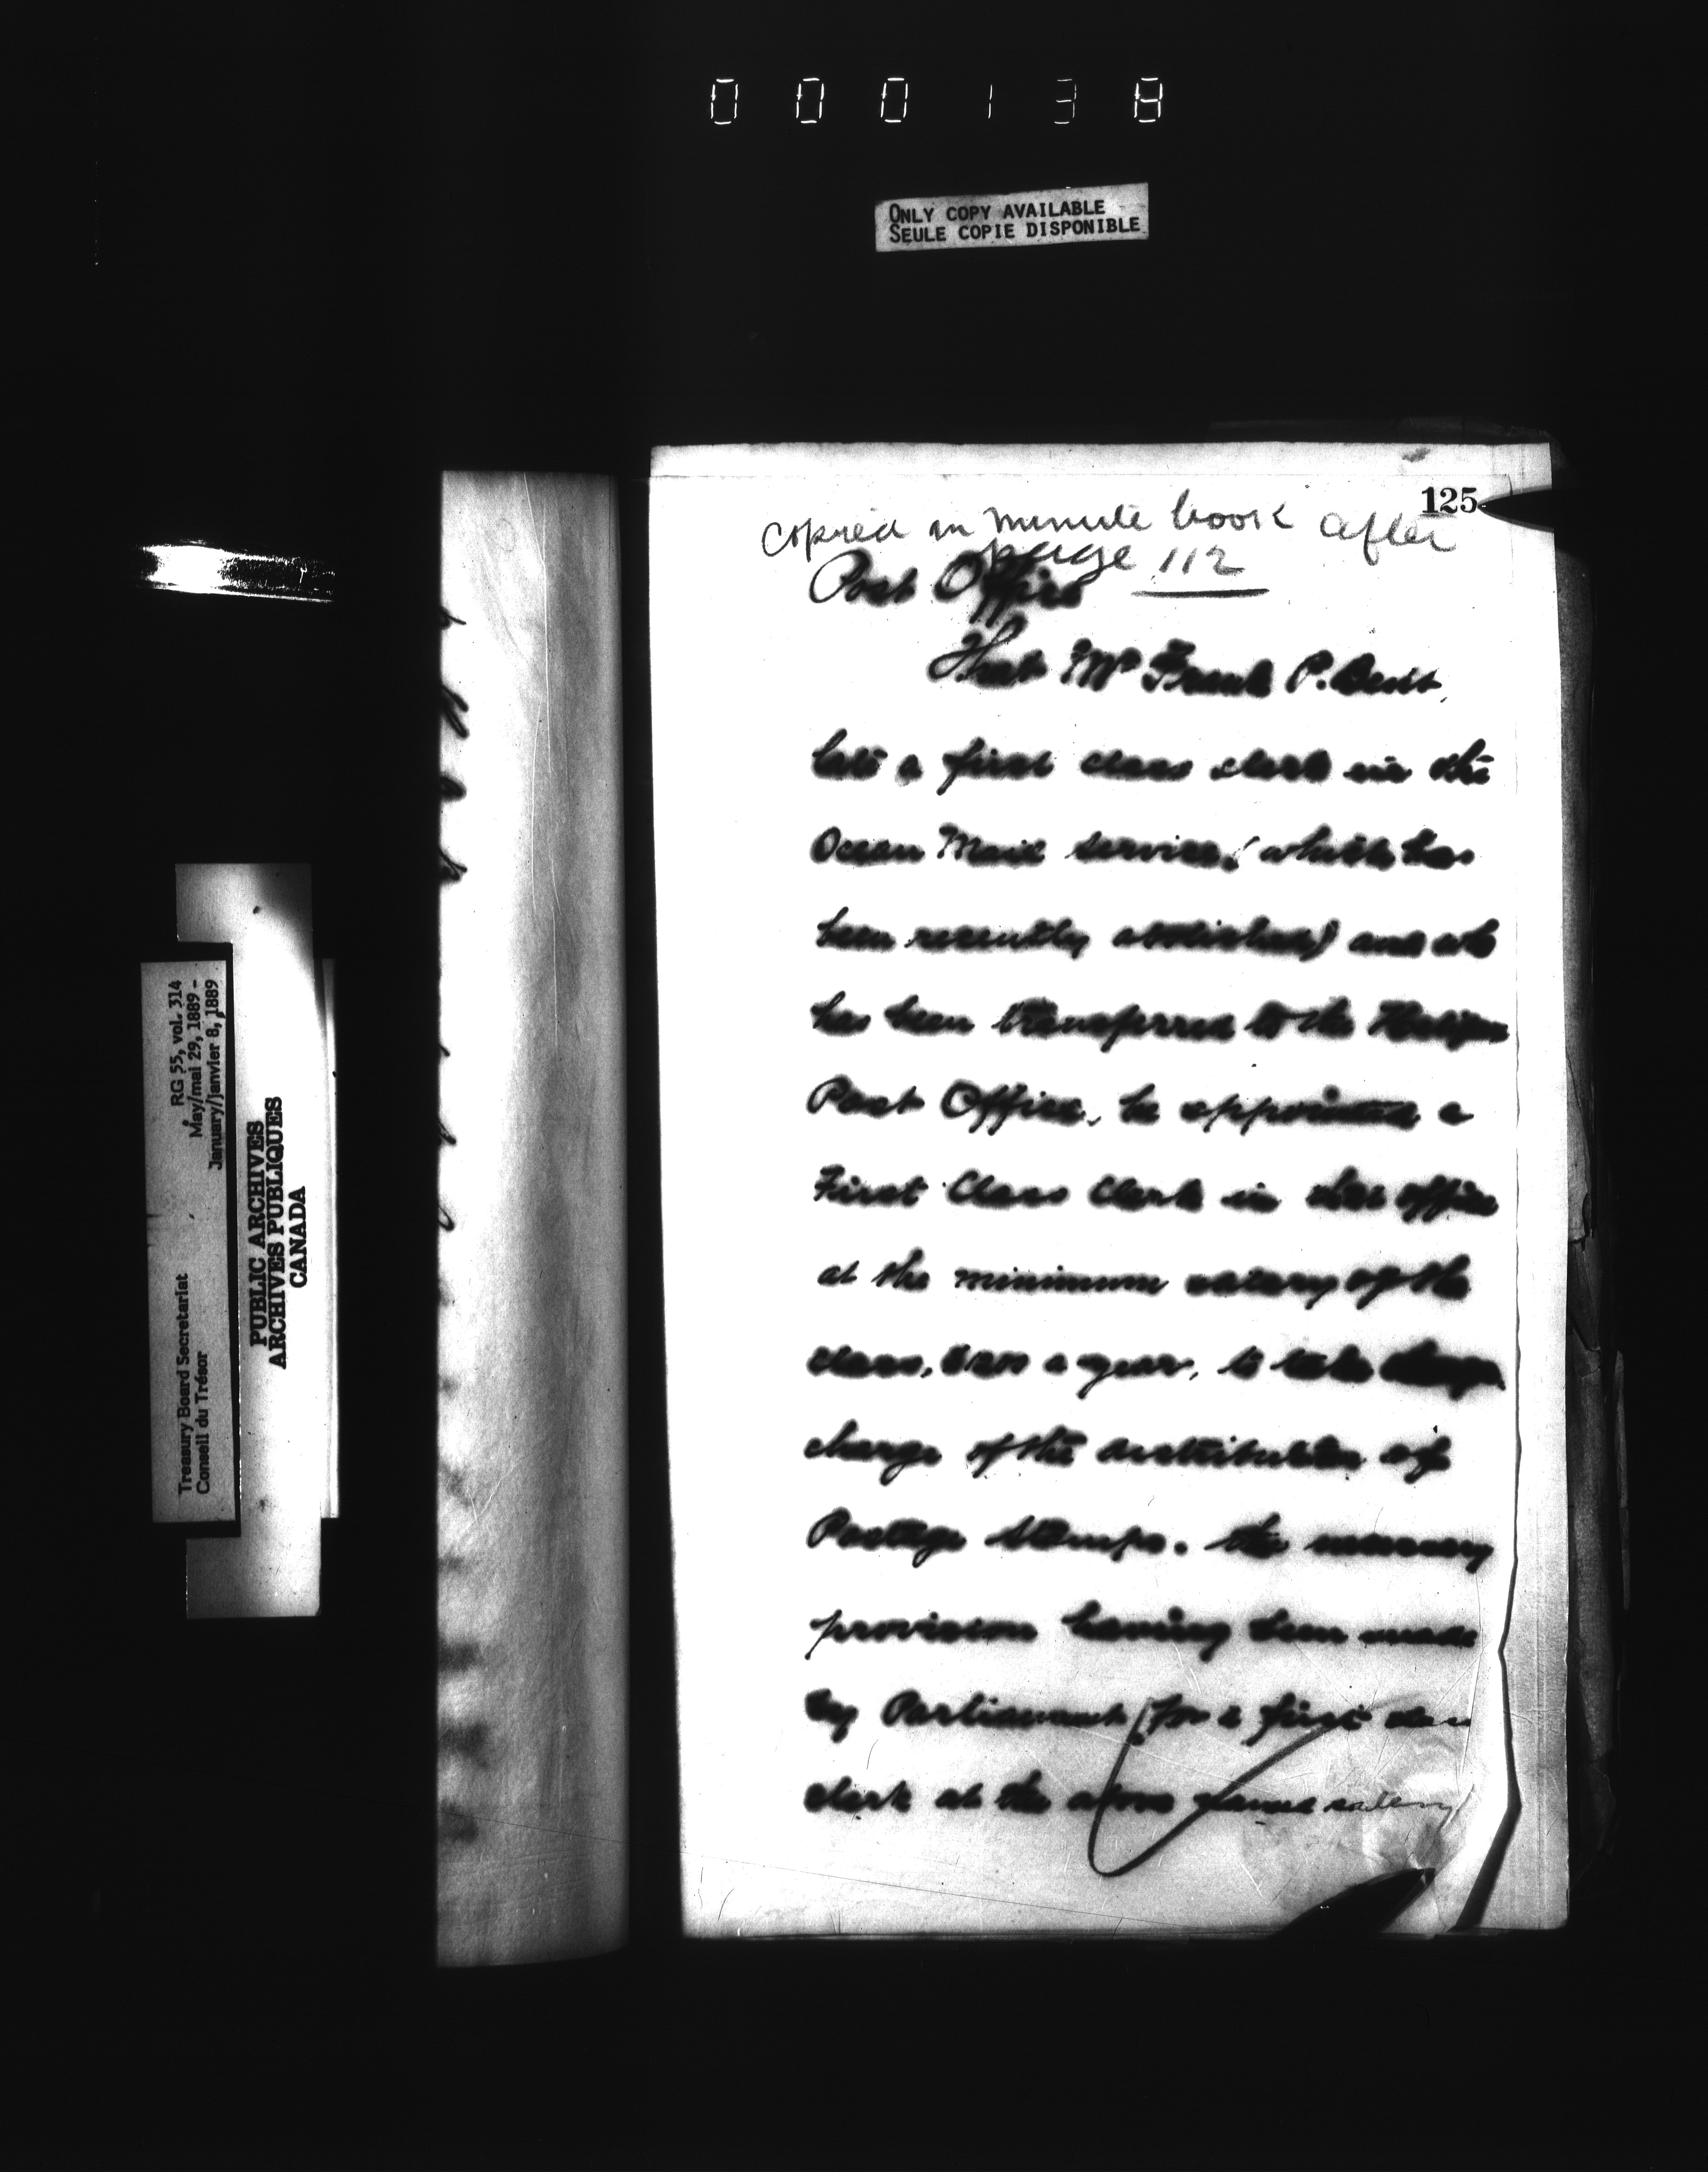 000138
ONLY COPY AVAILABLE
SEULE COPIE DISPONIBLE
125
copied in minute book after
page 112
Post Office
That Mr Frank P. Bent,
late a first class clerk in the
Ocean Mail Service, (which has
been recently abolished) and who
has been transferred to the Halifax
Post Office, be appointed a
First Class Clerk in that office
at the minimum salary of the
class, a year, to take
charge of the distribution of
Postage Stamps. the necessary
provision having been made
by Parliament for a first class
clerk at the above named salary
RG 55, vol. 314
May/mai 29, 1889 -
January/janvier 8, 1889
Treasury Board Secretariat
Conseil du Trésor
PUBLIC ARCHIVES
ARCHIVES PUBLIQUES
CANADA